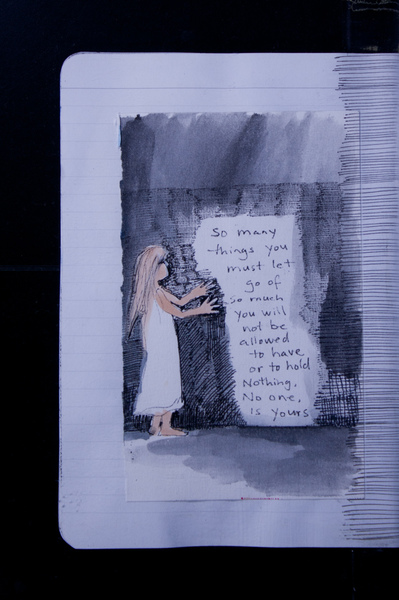 So many
things you
must let
go of
So much
you will
not be
allowed
to have
or to hold
Nothing,
No one,
is yours